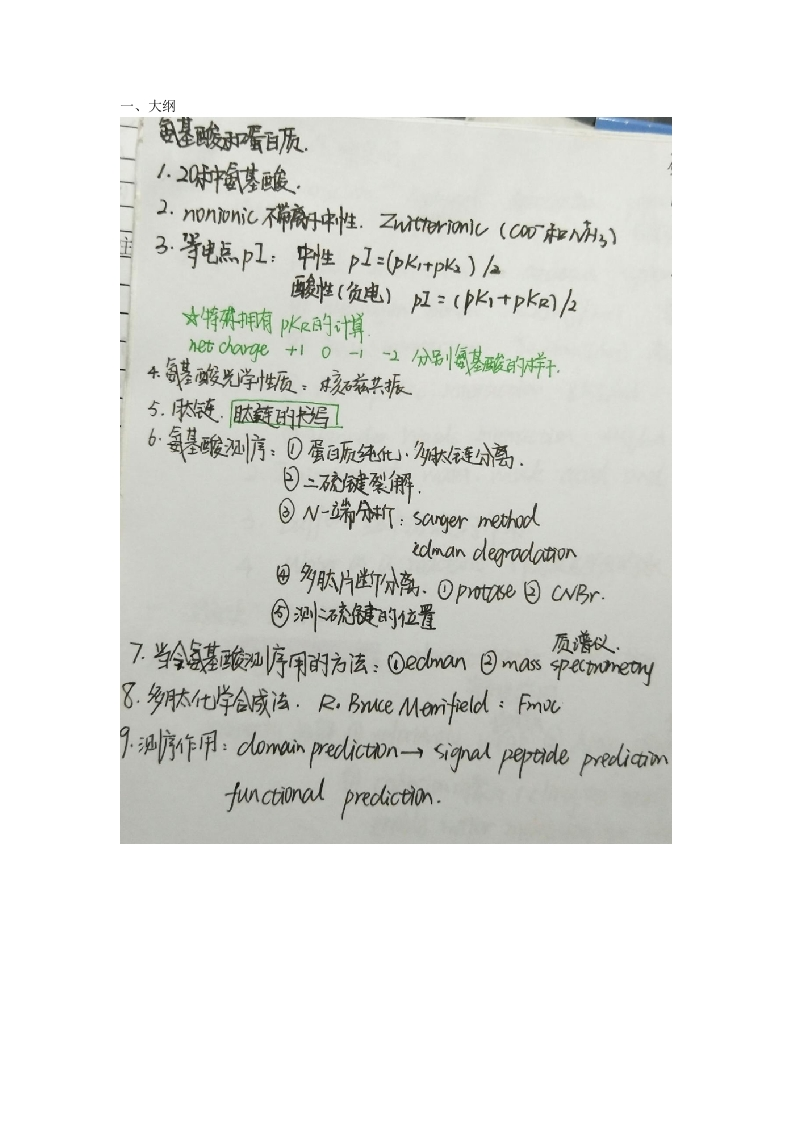 一、大纲
氨基酸和蛋白质.
1. 20种氨基酸.
2. nonionic 不带离子中性. Zwitterionic (COO⁻和NH3)
3. 等电点pI: 中性 pI=(pK1+pK2)/2
酸性(负电) pI=(pK1+pKR)/2
☆特殊拥有pKR的计算.
net charge +1 0 -1 -2 分别氨基酸的样子.
4. 氨基酸光学性质: 核磁共振
5. 肽链. 肽链的书写
6. 氨基酸测序: ① 蛋白质纯化、多肽链分离.
② 二硫键裂解.
③ N-端分析: sanger method
edman degradation
④ 多肽片断分离. ① protase ② CNBr.
⑤ 测二硫键的位置
质谱仪.
7. 当今氨基酸测序用的方法: ① edman ② mass spectrometry
8. 多肽化学合成法. R. Bruce Merrifield: Fmoc
9. 测序作用: domain prediction → signal peptide prediction
functional prediction.